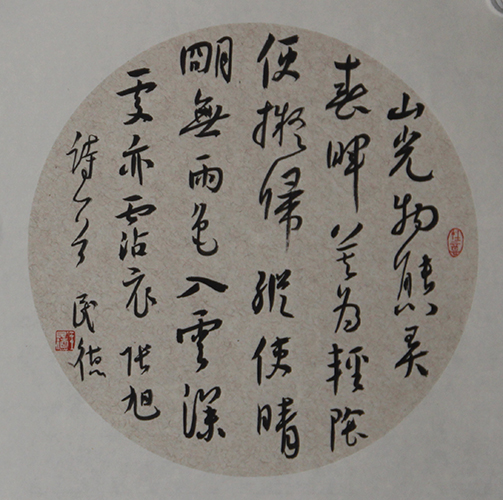 山光物態弄
春暉莫為輕陰
便擬歸縱使晴
朙無雨色入雲深
處亦霑衣張旭
詩一首民德